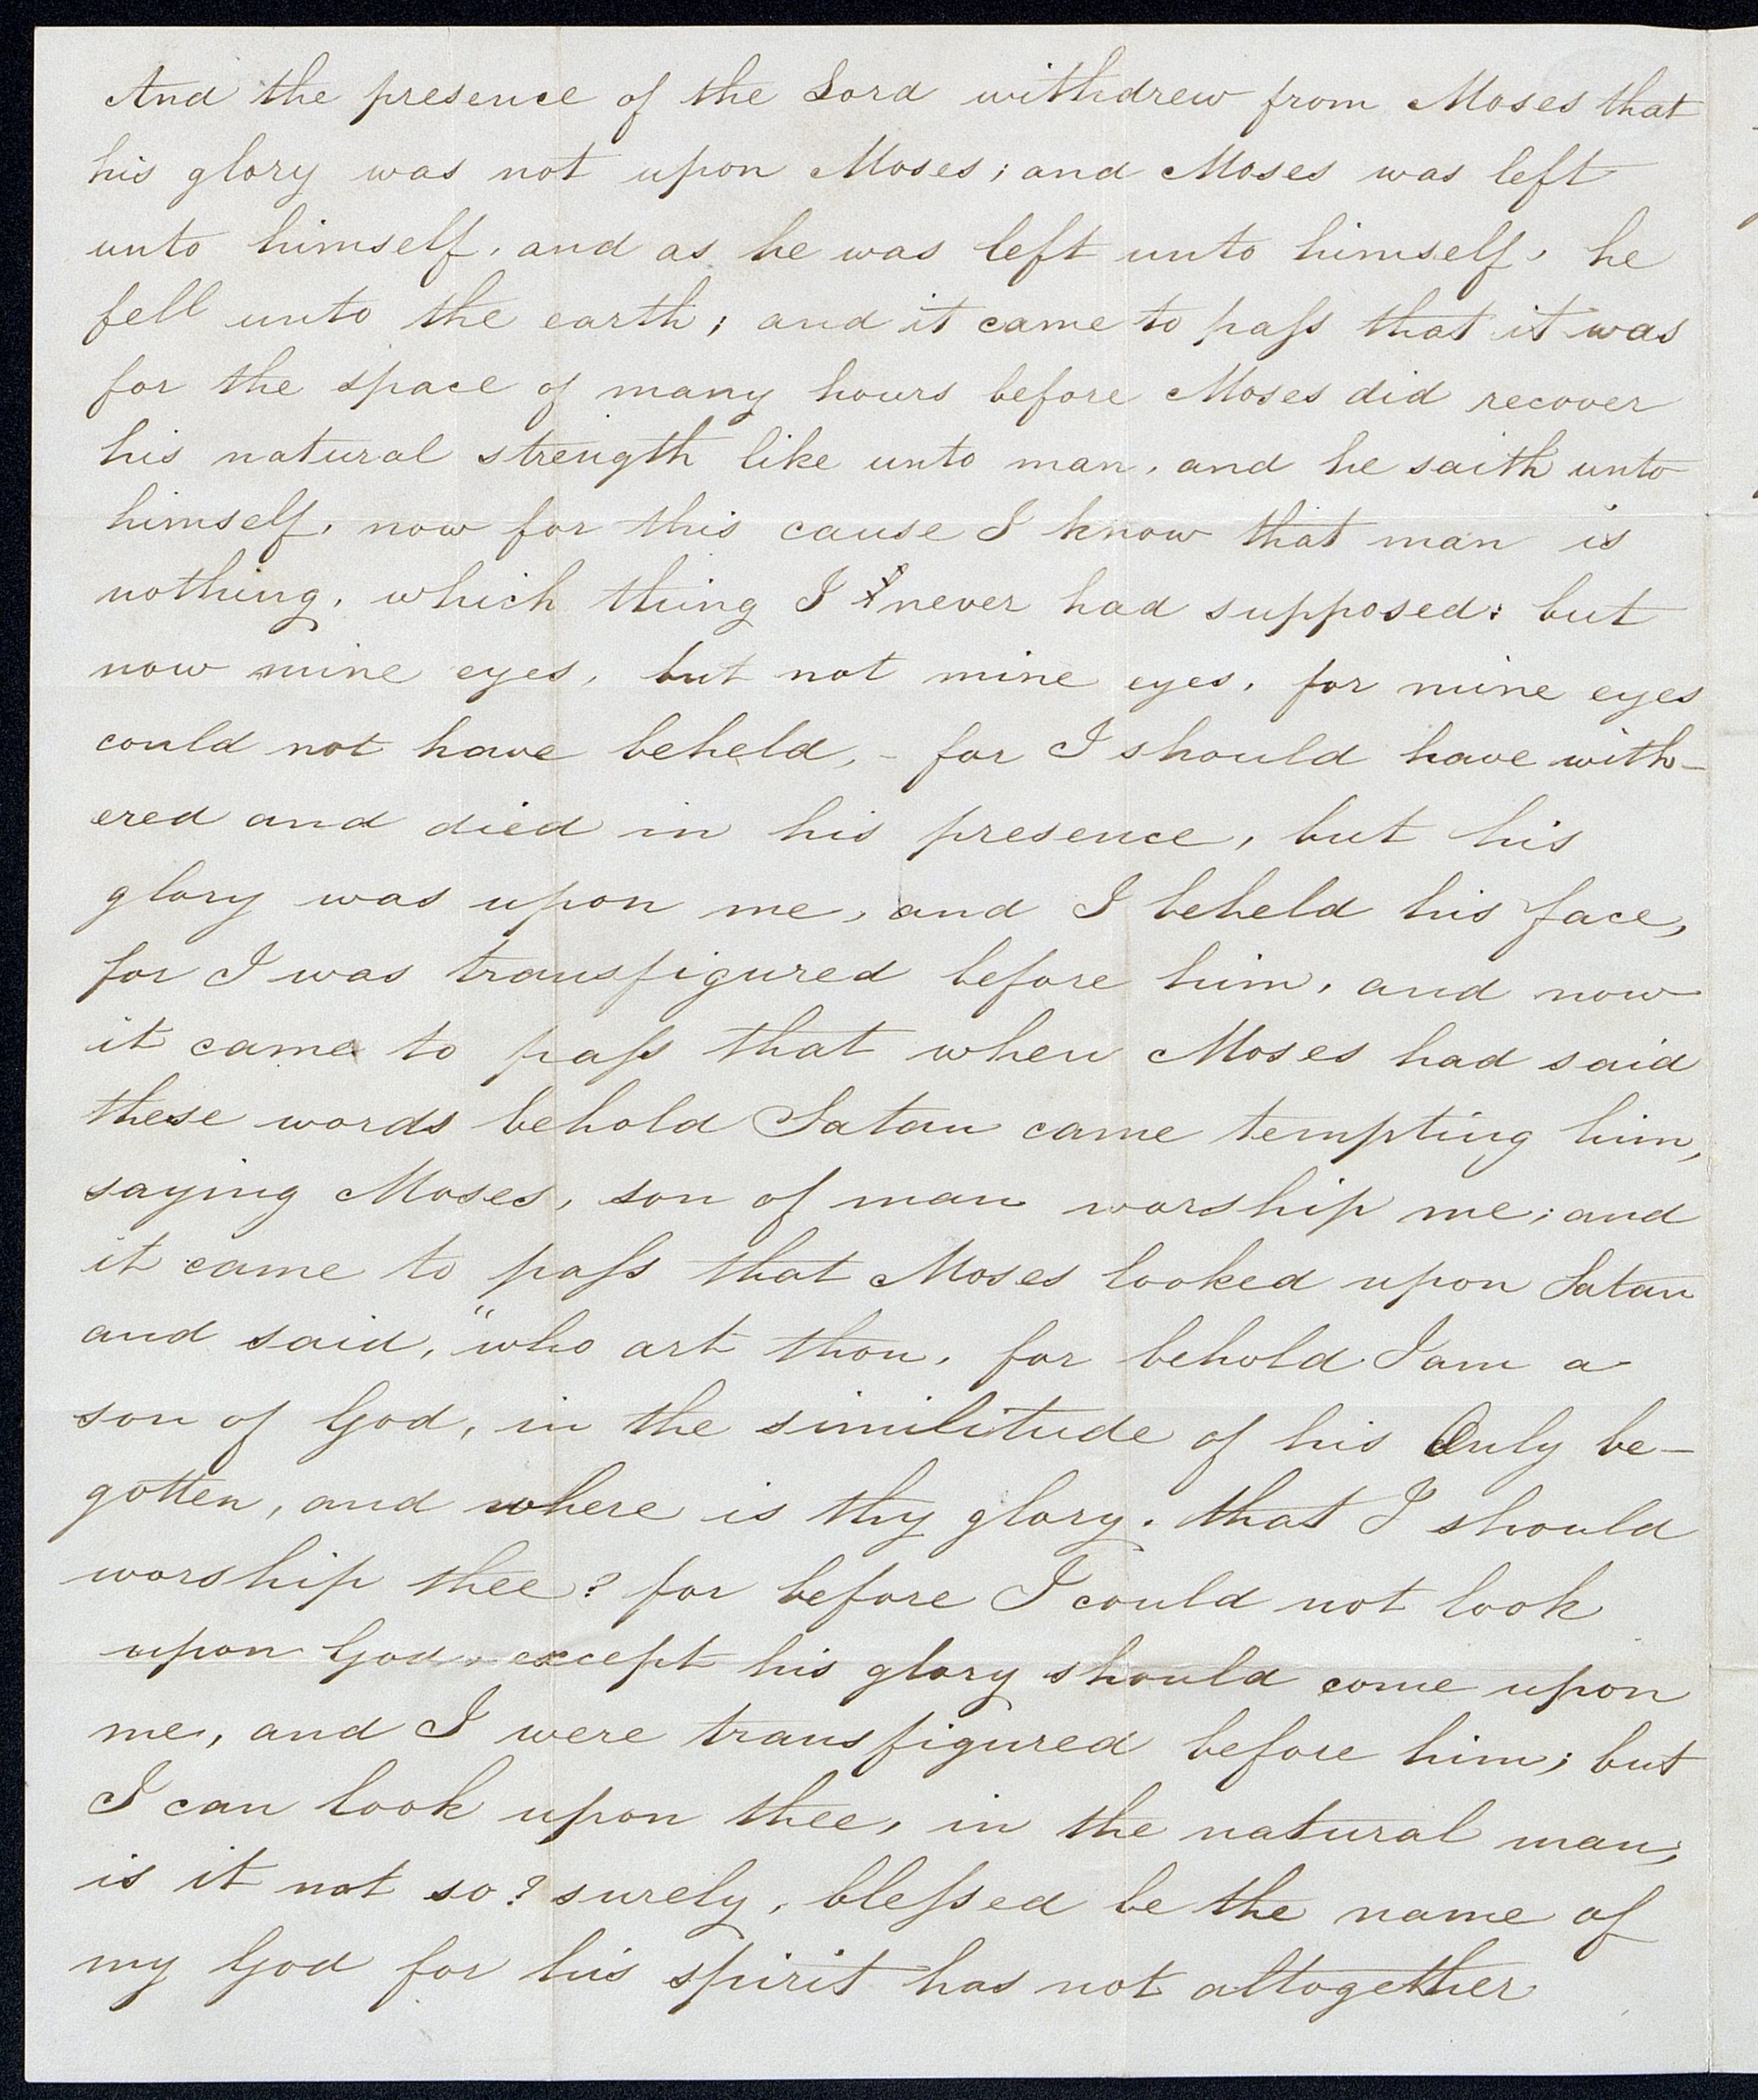 And the presence of the Lord withdrew from Moses that
his glory was not upon Moses; and Moses was left
unto himself, and as he was left unto himself, he
fell unto the earth; and it came to pass that it was
for the space of many hours before Moses did recover
his natural strength like unto man, and he saith unto
himself, now for this cause I know that man is
nothing, which thing I never had supposed: but
now mine eyes, but not mine eyes, for mine eyes
could not have beheld, - for I should have with-
ered and died in his presence, but his
glory was upon me, and I beheld his face,
for I was transfigured before him, and now
it came to pass that when Moses had said
these words behold Satan came tempting him,
saying Moses, son of man worship me; and
it came to pass that Moses looked upon Satan
and said, "who art thou, for behold I am a
son of God, in the similitude of his Only be-
gotten, and where is thy glory. that I should
worship thee? for before I could not look
upon God, except his glory should come upon
me, and I were transfigured before him; but
I can look upon thee, in the natural man,
is it not so? surely, blessed be the name of
my God for his spirit has not altogether